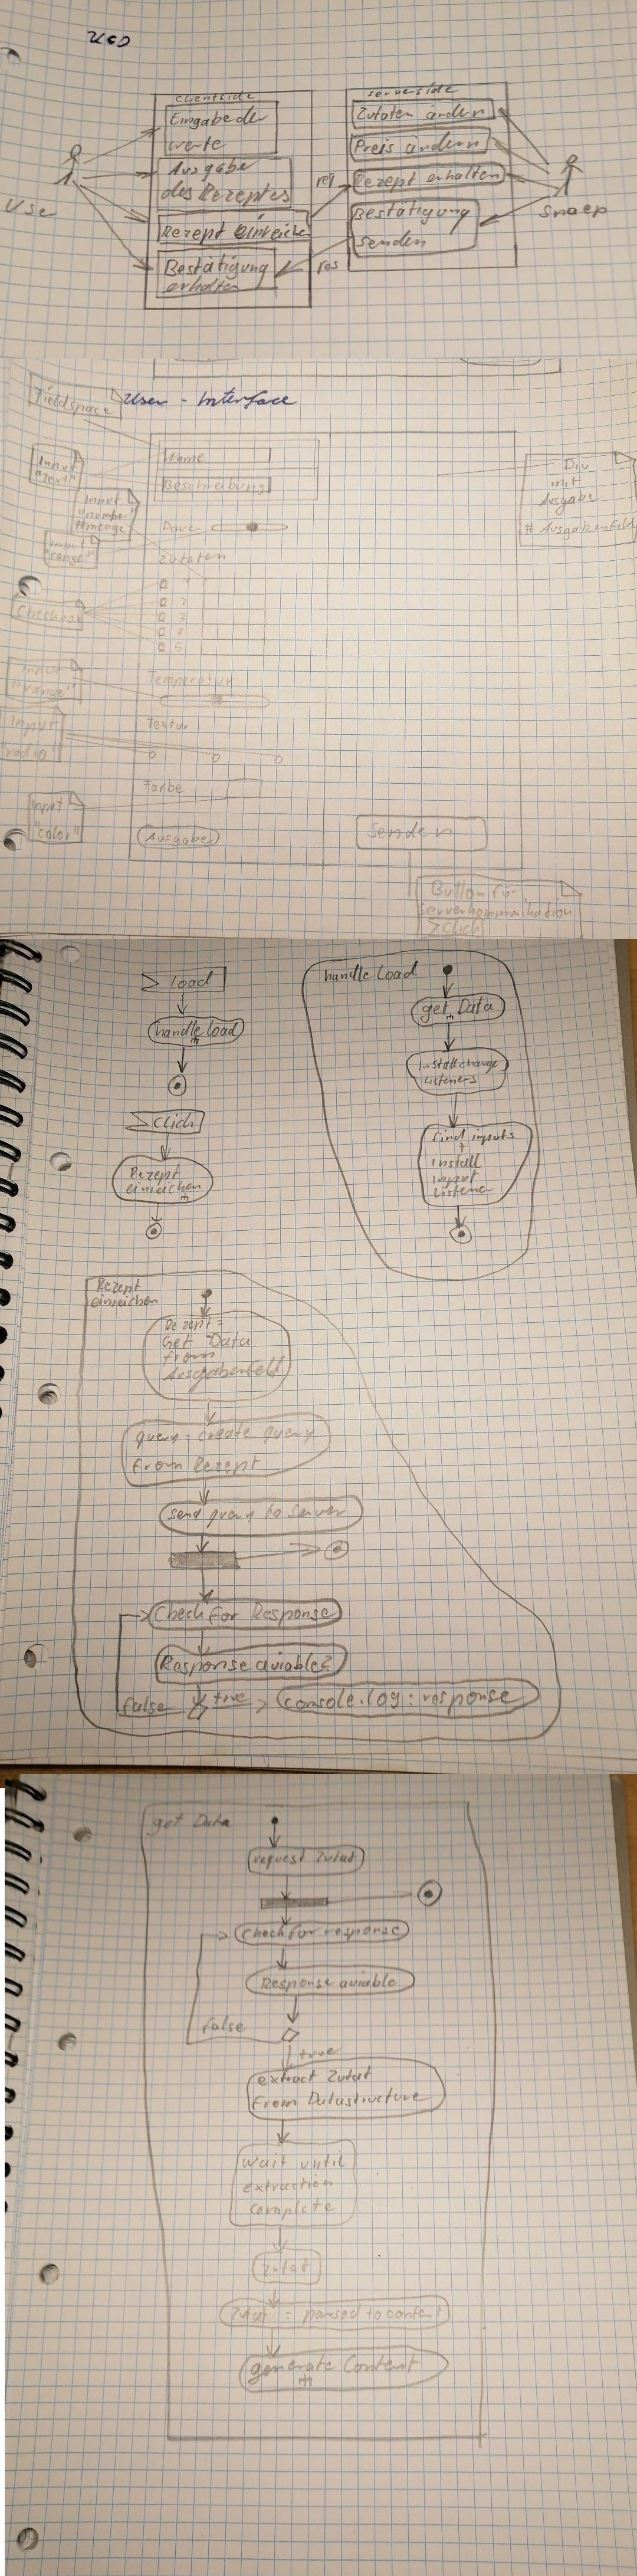 clientside
Eingabe der
werte
Ausgabe
des Rezeptes
Rezept einreiche
Bestätigung
erhalten
User
req
res
serverside
Zutaten ändern
Preis ändern
Rezept erhalten
Bestätigung
senden
User - Interface
Fieldspace
Input
"text"
Input
"number"
#menge
"range"
Checkbox
Input
"range"
Input
"radio"
Input
"color"
Name
Beschreibung
Dauer
Zutaten
1
2
3
4
5
Temperatur
Textur
Farbe
Ausgabe
Senden
Div
mit
Ausgabe
# Ausgabenfeld
Button für
serverkommunikation
>Click
load
handle load
click
Rezept
einreichen
handle load
get Data
Install change
Listeners
find inputs
+
Install
input
Listener
Rezept
einreichen
Rezept =
Get Data
from
Ausgabenfeld
query = create query
from Rezept
send query to server
Check for Response
Response aviable?
false
true
console.log : response
get Data
request Zutat
Check for response
Response aviable
false
true
extract Zutat
from Datastructure
wait until
extraction
complete
Zutat
Zutat = parsed to content
generate Content